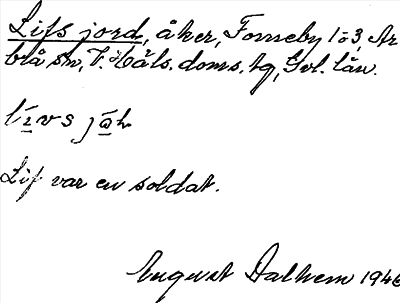 Lifs jord, åker, Forneby 1-3, Ar
brå sn, V. Häls. doms. hg, Gvl. län.
līvs jɷh
Lif var en soldat.
August Dalhem 1946